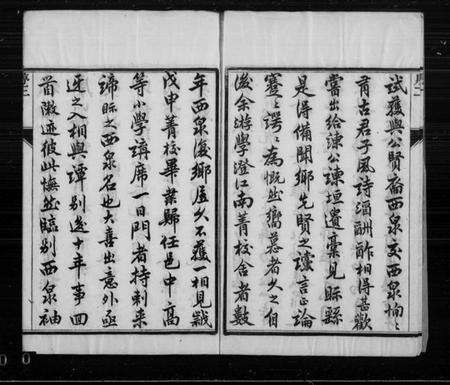 試獲與公賢裔西泉交西泉恂〻
有古君子風詩酒酬酢相得甚歡
嘗出給諫公諫垣遺稾見眎繇
是得備聞鄉先賢之讜言正論
蹇〻諤〻為慨然嚮慕者久之自
後余游學澄江南菁校舍者數
年西泉復鄉居久不獲一相見戢
戊申菁校畢業歸任邑中高
等小學講席一日門者持刺来
諦眎之西泉名也大喜出意外亟
迓之入相與譚别後十年事回
首激迹彼此憮然臨别西泉袖